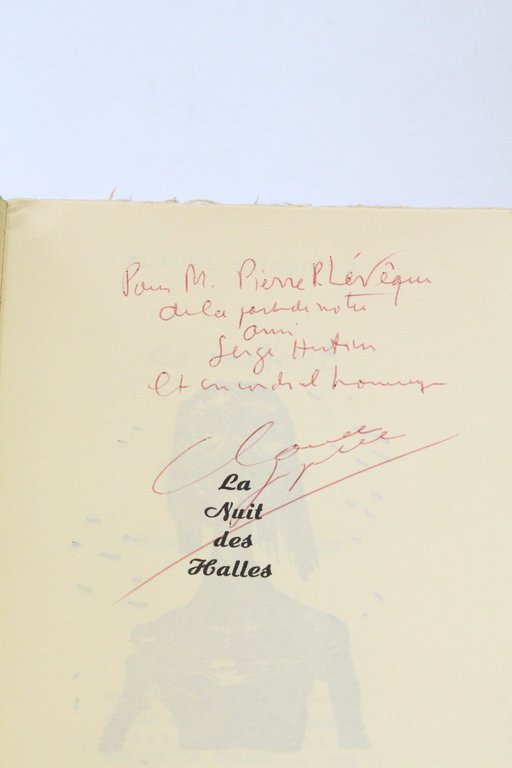 Pour M. Pierre P. Lévêque
de la part de notre
ami
Serge Hutin
et en cordial hommage
Claude
La
Nuit
des
Halles